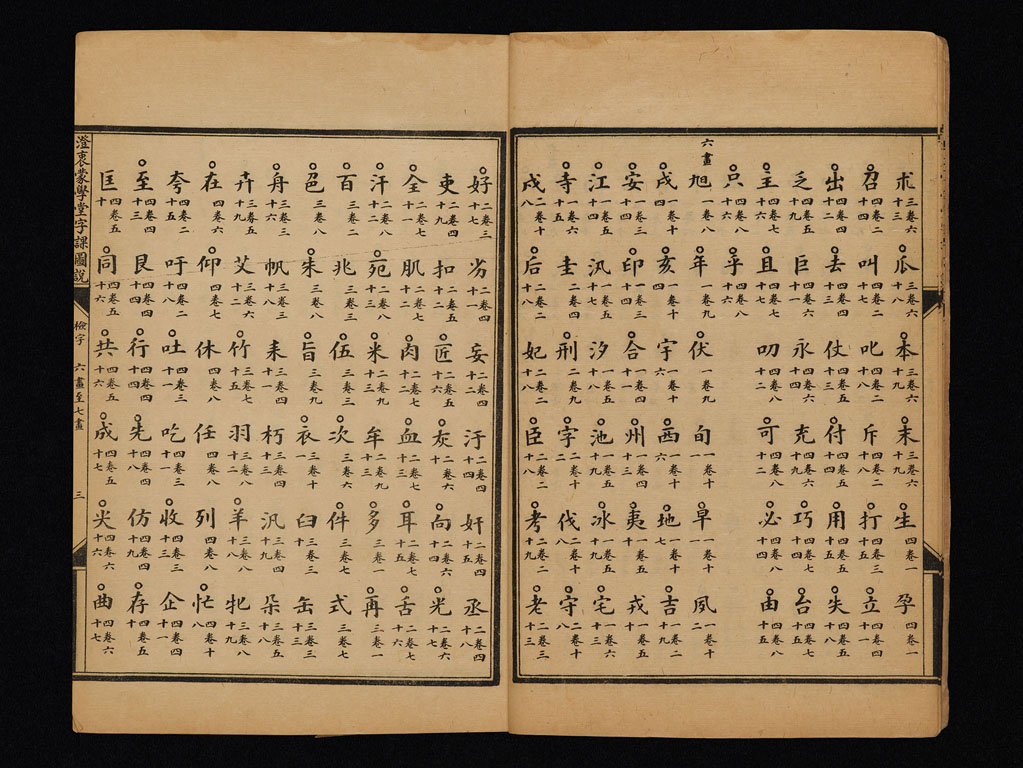 朮 三卷六 十三 瓜 三卷六 十八 本 三卷六 十九 末 三卷六 十九 生 四卷一 孕 四卷一
召 四卷二 十四 叫 四卷二 十七 叱 四卷二 十八 斥 四卷二 十八 打 四卷三 十五 立 四卷四 十一
出 四卷四 十二 去 四卷四 十二 仗 四卷五 十三 付 四卷五 十四 用 四卷五 十八 失 四卷六 十五
乏 四卷五 十九 巨 四卷六 十七 永 四卷六 十四 充 四卷六 十九 巧 四卷七 十四 台 四卷七 十五
主 四卷六 十二 且 四卷八 十七 叨 四卷八 十二 可 四卷八 十二 必 四卷八 十四 由 四卷八 十五
只 四卷八 十六 乎 四卷八 十六
六畫
旭 一卷六 十八 年 一卷九 伏 一卷九 旬 一卷十 一 早 一卷十 一 夙 一卷十 二
戌 一卷十 四 亥 一卷十 四 宇 一卷十 六 西 一卷十 六 地 一卷十 七 吉 一卷二 十九
安 一卷三 十四 印 一卷四 十 合 一卷四 十一 州 一卷四 十三 夷 一卷五 十 戎 一卷五 十
江 一卷五 十四 汎 一卷五 十七 汐 一卷五 十八 池 一卷五 十九 冰 一卷五 十九 宅 一卷六 十三
寺 一卷六 十五 圭 二卷一 十 刑 二卷一 十九 字 二卷二 伐 二卷一 十八 守 二卷一 十八
戍 二卷一 十八 后 二卷二 十八 妃 二卷二 十八 臣 二卷二 十八 考 二卷二 十一 老 二卷三 十三
好 二卷三 十七 劣 二卷四 十一 妄 二卷四 十二 汙 二卷四 十四 奸 二卷四 十五 丞 二卷四 十八
吏 二卷四 十九 扣 二卷五 十二 匠 二卷五 十六 灰 二卷六 十二 向 二卷六 十四 光 二卷六 十七
全 二卷七 十一 肌 二卷七 十二 肉 二卷七 十二 血 二卷七 十三 耳 二卷七 十五 舌 二卷七 十六
汗 二卷八 十二 宛 二卷八 十三 米 二卷九 十三 牟 二卷九 十三 多 三卷一 再 三卷一
百 三卷二 兆 三卷三 伍 三卷三 次 三卷六 件 三卷七 式 三卷七
邑 三卷八 朱 三卷八 旨 三卷九 衣 三卷十 一 臼 三卷三 十 缶 三卷三 十三
舟 三卷三 十六 帆 三卷三 十八 耒 三卷四 十一 朽 三卷四 十三 汎 三卷四 十九 朵 三卷五 十八
卉 三卷五 十九 艾 三卷六 十二 竹 三卷六 十五 羽 三卷八 十一 羊 三卷八 十八 牝 三卷八 十九
在 四卷六 仰 四卷七 休 四卷八 任 四卷八 列 四卷八 忙 四卷十 八
夸 四卷二 十五 吁 四卷二 十八 吐 四卷三 十一 吃 四卷三 十一 收 四卷三 十三 企 四卷四 十一
至 四卷四 十三 艮 四卷四 十四 行 四卷四 十四 先 四卷四 十八 仿 四卷四 十九 存 四卷五 十
匡 四卷五 十 同 四卷五 十六 共 四卷五 十六 成 四卷五 十七 尖 四卷六 十六 曲 四卷六 十七
澄衷蒙學堂字課圖說
檢字 六畫至七畫 三